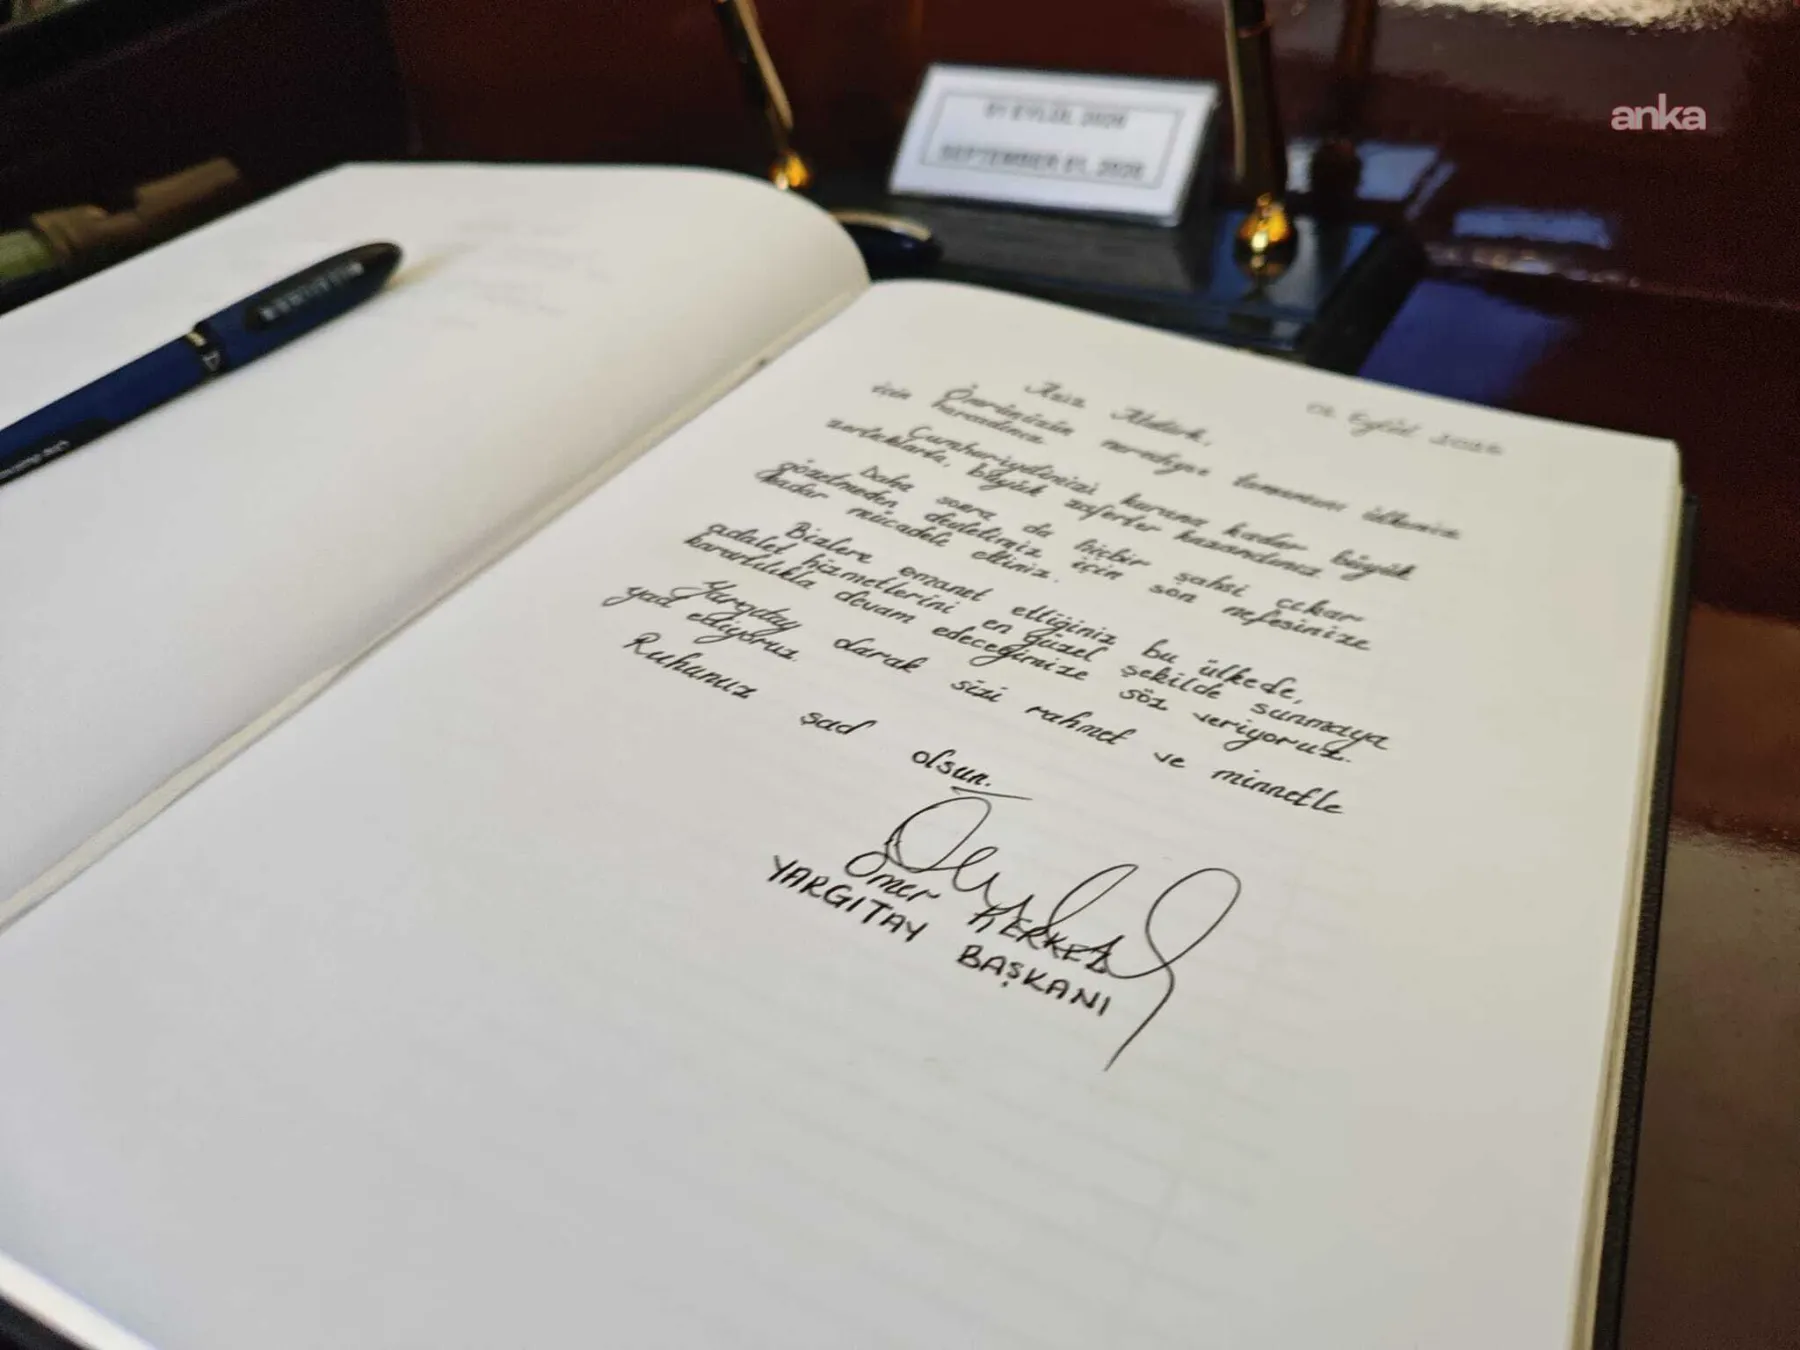 anka
01 EYLÜL 2026
SEPTEMBER 01, 2026
01 Eylül 2026
Aziz Atatürk,
Ömrünüzün neredeyse tamamını ülkemiz
için harcadınız
Cumhuriyetimizi kurana kadar büyük
zorluklarla, büyük zaferler kazandınız.
Daha sonra da hiçbir şahsi çıkar
gözetmeden devletimiz için son nefesinize
kadar mücadele ettiniz.
Bizlere emanet ettiğiniz bu ülkede,
adalet hizmetlerini en güzel şekilde sunmaya
kararlılıkla devam edeceğimize söz veriyoruz.
Yargıtay olarak sizi rahmet ve minnetle
yad ediyoruz.
Ruhunuz şad olsun.
Ömer KERKEZ
YARGITAY BAŞKANI